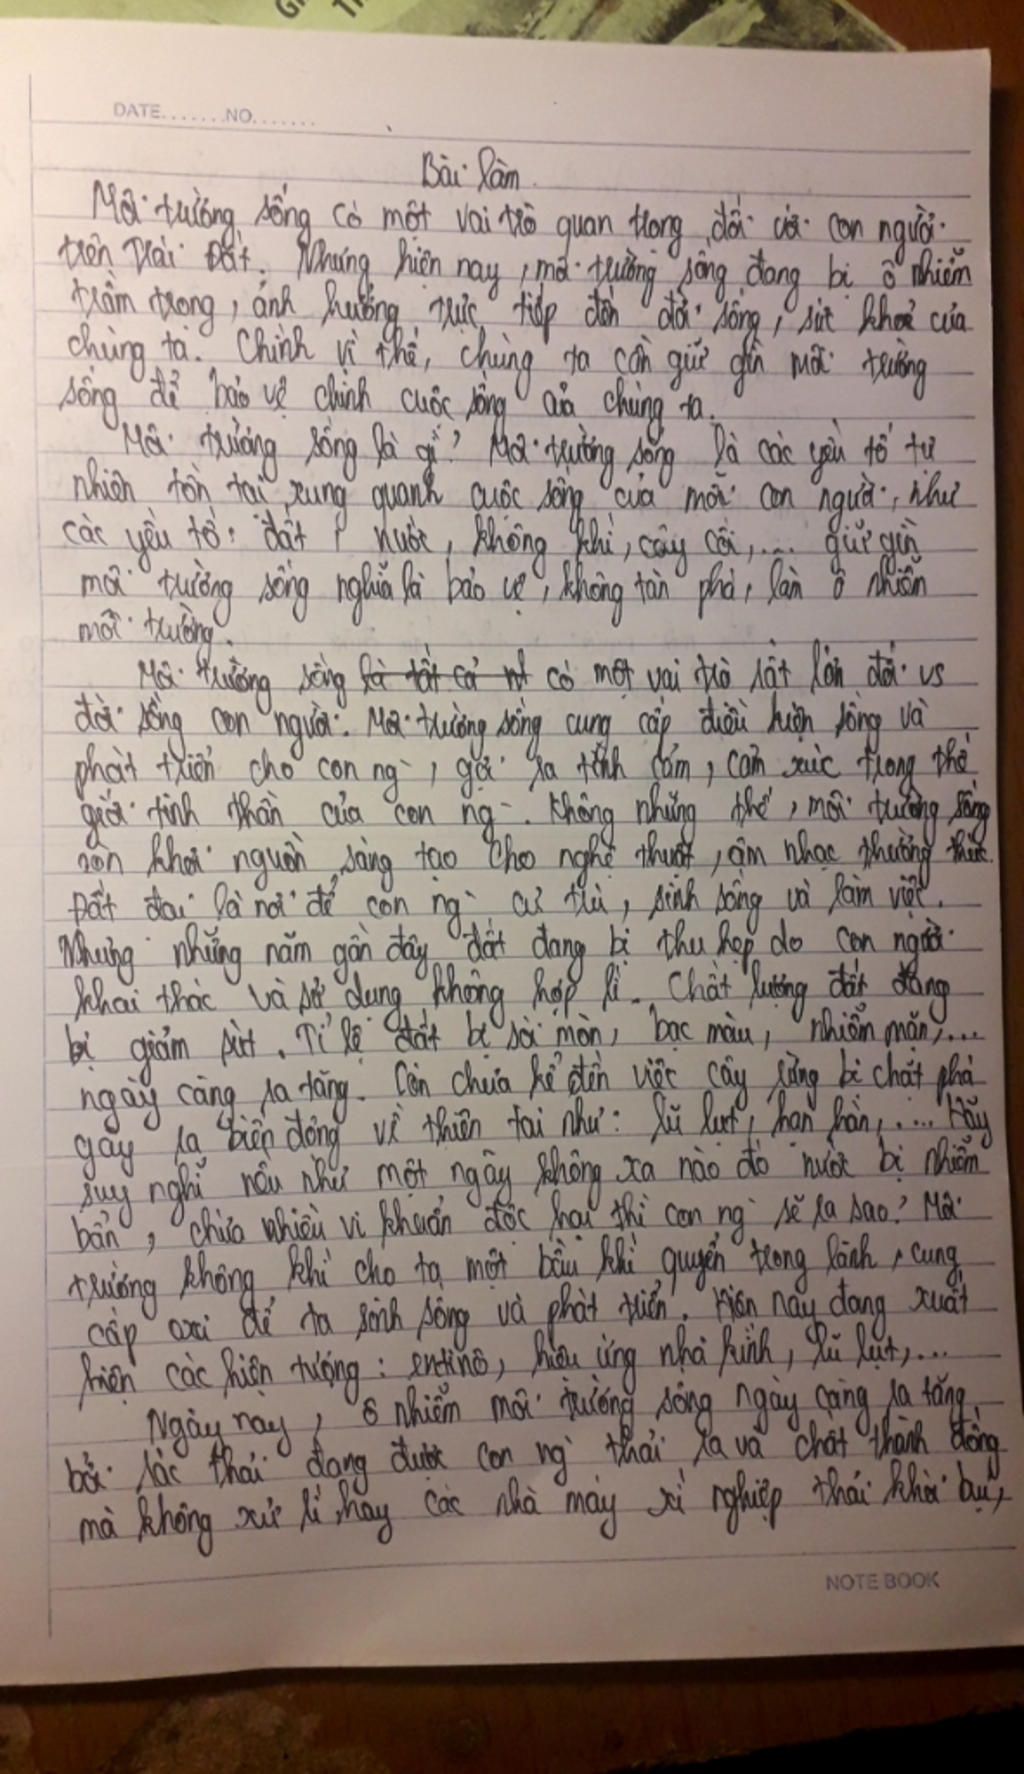 DATE.......NO.......
Bài làm
Môi trường sống có một vai trò quan trọng đối với con người
trên Trái Đất. Nhưng hiện nay, môi trường sống đang bị ô nhiễm
trầm trọng, ảnh hưởng trực tiếp đến đời sống, sức khoẻ của
chúng ta. Chính vì thế, chúng ta cần giữ gìn môi trường
sống để bảo vệ chính cuộc sống của chúng ta.
Môi trường sống là gì? Môi trường sống là các yếu tố tự
nhiên tồn tại xung quanh cuộc sống của mỗi con người, như
các yếu tố: đất, nước, không khí, cây cối,.... giữ gìn
môi trường sống nghĩa là bảo vệ, không tàn phá, làm ô nhiễm
môi trường.
Môi trường sống là tất cả có một vai trò rất lớn đối vs
đời sống con người. Môi trường sống cung cấp điều kiện sống và
phát triển cho con ng`, gợi ra tình cảm, cảm xúc trong thế
giới tinh thần của con ng`. Không những thế, môi trường sống
còn khơi nguồn sáng tạo cho nghệ thuật, âm nhạc thưởng thức.
Đất đai là nơi để con ng` cư trú, sinh sống và làm việc.
Nhưng những năm gần đây đất đang bị thu hẹp do con người
khai thác và sử dụng không hợp lí. Chất lượng đất đang
bị giảm sút. Tỉ lệ đất bị sói mòn, bạc màu, nhiễm mặn,...
ngày càng ra tăng. Còn chưa kể đến việc cây rừng bị chặt phá
gây ra biến động về thiên tai như: lũ lụt, hạn hán,.... Hãy
suy nghĩ nếu như một ngày không xa nào đó nước bị nhiễm
bẩn, chứa nhiều vi khuẩn độc hại thì con ng` sẽ ra sao? Môi
trường không khí cho ta một bầu khí quyển trong lành, cung
cấp oxi để ta sinh sống và phát triển. Hiện nay đang xuất
hiện các hiện tượng: entinô, hiệu ứng nhà kính, lũ lụt,...
Ngày nay, ô nhiễm môi trường sống ngày càng ra tăng
bởi rác thải đang được con ng` thải ra và chất thành đống
mà không xử lí, hay các nhà máy xí nghiệp thải khói bụi,
NOTE BOOK